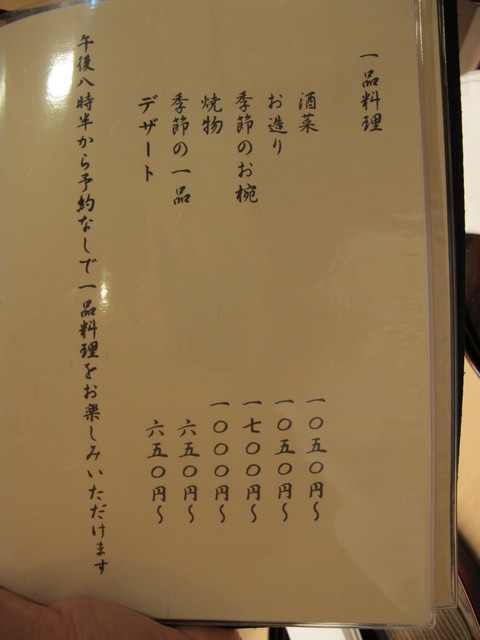 一品料理
酒菜 一〇五〇円〜
お造り 一〇五〇円〜
季節のお椀 一七〇〇円〜
焼物 一〇〇〇円〜
季節の一品 六五〇円〜
デザート 六五〇円〜
午後八時半から予約なしで一品料理をお楽しみいただけます